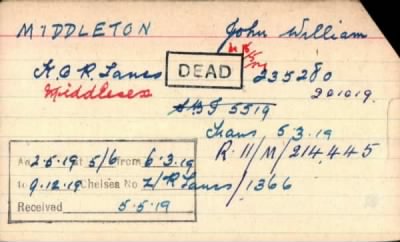 MIDDLETON John William
K.O.R. Lancs DEAD 235280
Middlesex 201019.
5519
Trans, 5.3.19
R.11/M/214,445
An 2-5-19 at 5/6 from 6.3.19
to 9.12.19 Chelsea No Z/R Lancs/1366
Received 5.5.19